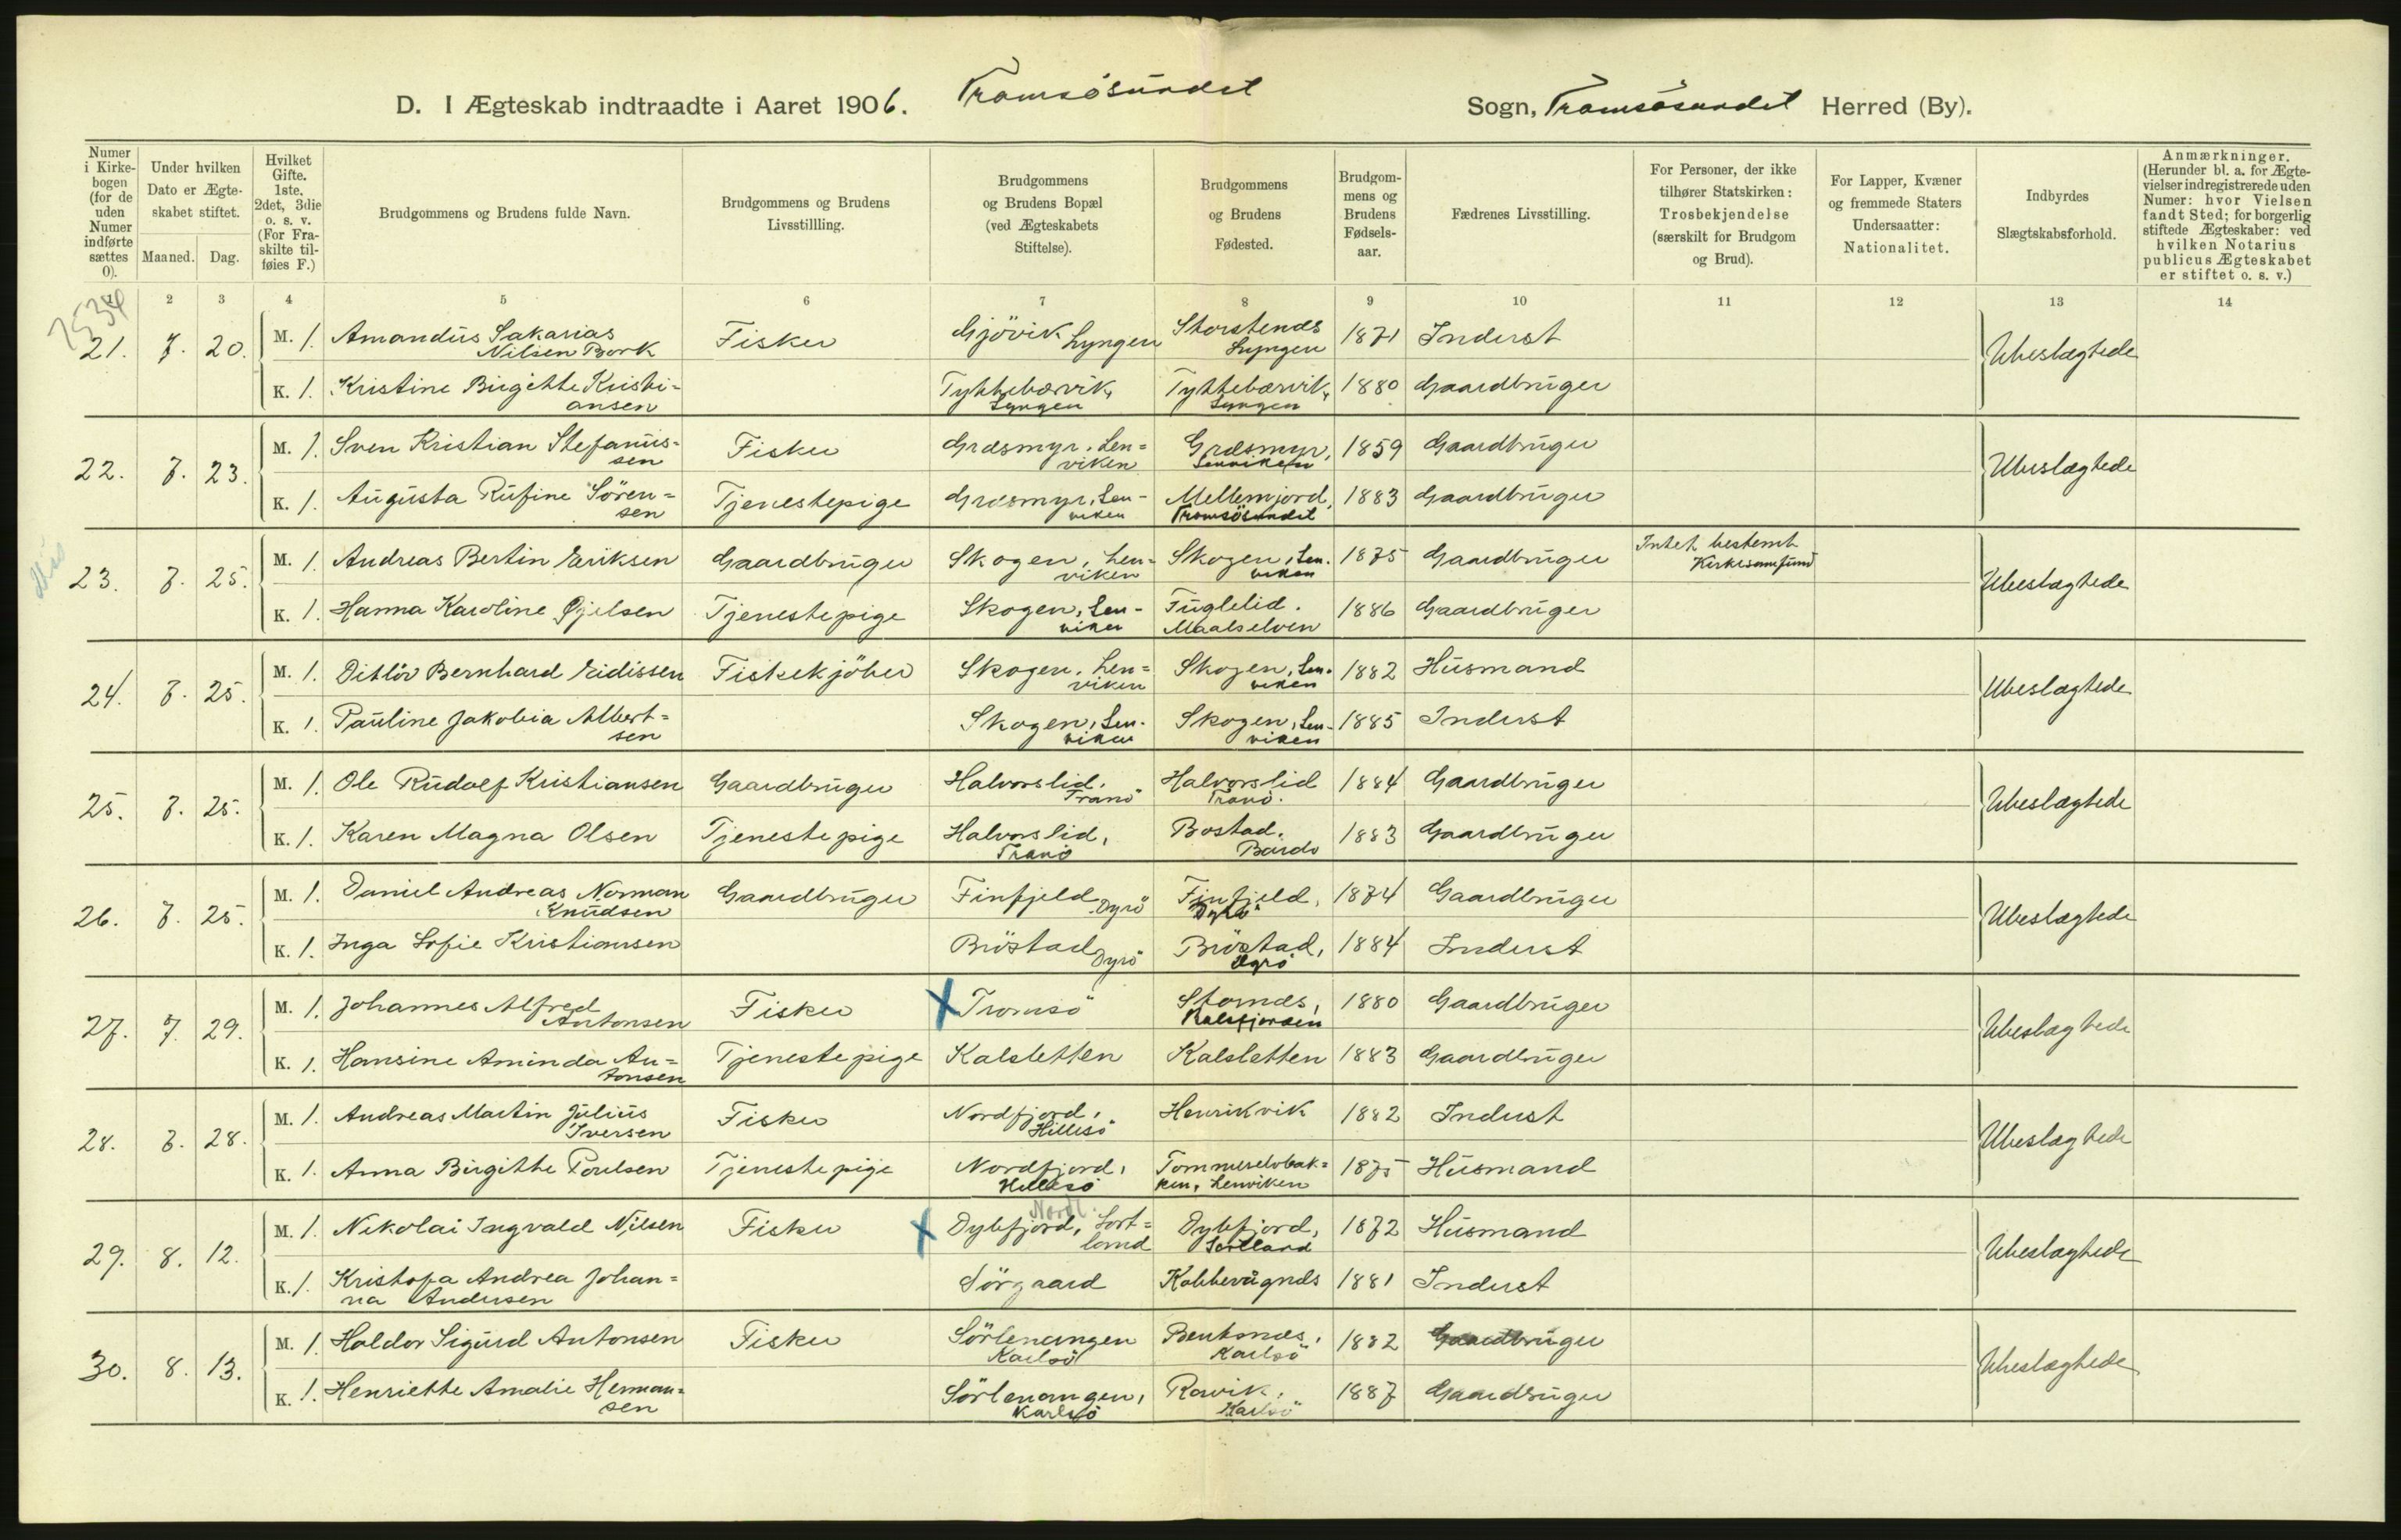 D. I Ægteskab indtraadte i Aaret 1906. Tromsösundet Sogn, Tromsösundet Herred (By).
Numer i Kirkebogen (for de uden Numer indførte sættes 0).
Under hvilken Dato er Ægteskabet stiftet.
Maaned. Dag.
Hvilket Gifte. 1ste, 2det, 3die o. s. v. (For Fraskilte tilføies F.)
Brudgommens og Brudens fulde Navn.
Brudgommens og Brudens Livsstillling.
Brudgommens og Brudens Bopæl (ved Ægteskabets Stiftelse).
Brudgommens og Brudens Fødested.
Brudgommens og Brudens Fødselsaar.
Fædrenes Livsstilling.
For Personer, der ikke tilhører Statskirken: Trosbekjendelse (særskilt for Brudgom og Brud).
For Lapper, Kvæner og fremmede Staters Undersaatter: Nationalitet.
Indbyrdes Slægtskabsforhold.
Anmærkninger. (Herunder bl. a. for Ægtevielser indregistrerede uden Numer: hvor Vielsen fandt Sted; for borgerlig stiftede Ægteskaber: ved hvilken Notarius publicus Ægteskabet er stiftet o. s. v.)
1 2 3 4 5 6 7 8 9 10 11 12 13 14
7534
21. 7. 20. M. 1. Amandus Sakarias Nilsen Bork Fisker Gjövik Lyngen Storstenæs Lyngen 1871 Inderst Ubeslægtede
K. 1. Kristine Birgitte Kristiansen Tyttebærvik, Lyngen Tyttebærvik, Lyngen 1880 Gaardbruger
22. 7. 23. M. 1. Sven Kristian Stefanussen Fisker Græsmyr, Lenviken Græsmyr, Lenviken 1859 Gaardbruger Ubeslægtede
K. 1. Augusta Rufine Sörensen Tjenestepige Græsmyr, Lenviken Mellemjord, Tromsösundet 1883 Gaardbruger
23. 7. 25. M. 1. Andreas Bertin Eriksen Gaardbruger Skogen, Lenviken Skogen, Lenviken 1875 Gaardbruger Intet bestemt Kirkesamfund Ubeslægtede
K. 1. Hanna Karoline Øjelsen Tjenestepige Skogen, Lenviken Fuglelid. Maalselven 1886 Gaardbruger
24. 7. 25. M. 1. Ditlöv Bernhard Eidissen Fiskekjöber Skogen, Lenviken Skogen, Lenviken 1882 Husmand Ubeslægtede
K. 1. Pauline Jakobia Albertsen Skogen, Lenviken Skogen, Lenviken 1885 Inderst
25. 7. 25. M. 1. Ole Rudolf Kristiansen Gaardbruger Halvorslid, Tranö Halvorslid Tranö. 1884 Gaardbruger Ubeslægtede
K. 1. Karen Magna Olsen Tjenestepige Halvorslid, Tranö Bostad, Bardo 1883 Gaardbruger
26. 7. 25. M. 1. Daniel Andreas Norman Knudsen Gaardbruger Finfjeld Dyrö Finfjeld, Dyrö 1874 Gaardbruger Ubeslægtede
K. 1. Inga Sofie Kristiansen Bröstad Dyrö Bröstad, Dyrö 1884 Inderst
27. 7. 29. M. 1. Johannes Alfred Antonsen Fisker X Tromsö Stornæs, Balsfjorden 1880 Gaardbruger Ubeslægtede
K. 1. Hansine Aminda Antonsen Tjenestepige Kalsletten Kalsletten 1883 Gaardbruger
28. 7. 28. M. 1. Andreas Martin Julius Iversen Fisker Nordfjord, Hillesö Henrikvik 1882 Inderst Ubeslægtede
K. 1. Anna Birgitte Poulsen Tjenestepige Nordfjord, Hillesö Tommerelvbakken, Lenviken 1875 Husmand
29. 8. 12. M. 1. Nikolai Ingvald Nilsen Fisker X Nordl. Dybfjord, Sortland Dybfjord, Sortland 1872 Husmand Ubeslægtede
K. 1. Kristofa Andrea Johanna Andersen Sörgaard Kobbevågnæs 1881 Inderst
30. 8. 13. M. 1. Haldor Sigurd Antonsen Fisker Sörlenangen Karlsö Bentsnæs, Karlsö 1882 Gaardbruger Ubeslægtede
K. 1. Henriette Amalie Hermansen Sörlenangen, Karlsö Ravik, Karlsö 1887 Gaardbruger